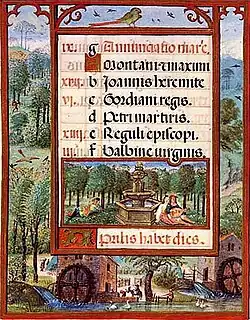 g Annunciatio marie.
A Montani maximi
b Joannis heremite
vi. c Gordiani regis.
d Petri martiris.
xiiii. e Reguli episcopi.
iii. f Balbine virginis.
Aprilis habet dies.